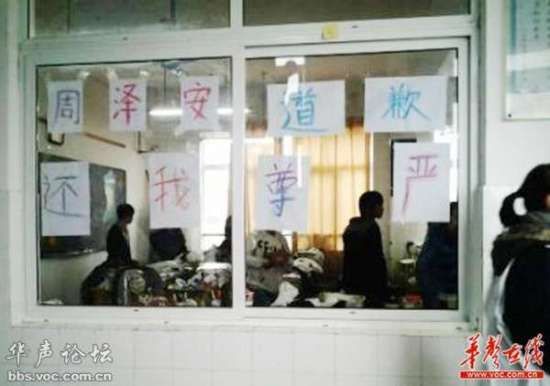 周泽安道歉
还我尊严
华声论坛
bbs.voc.com.cn
华声在线
www.voc.com.cn